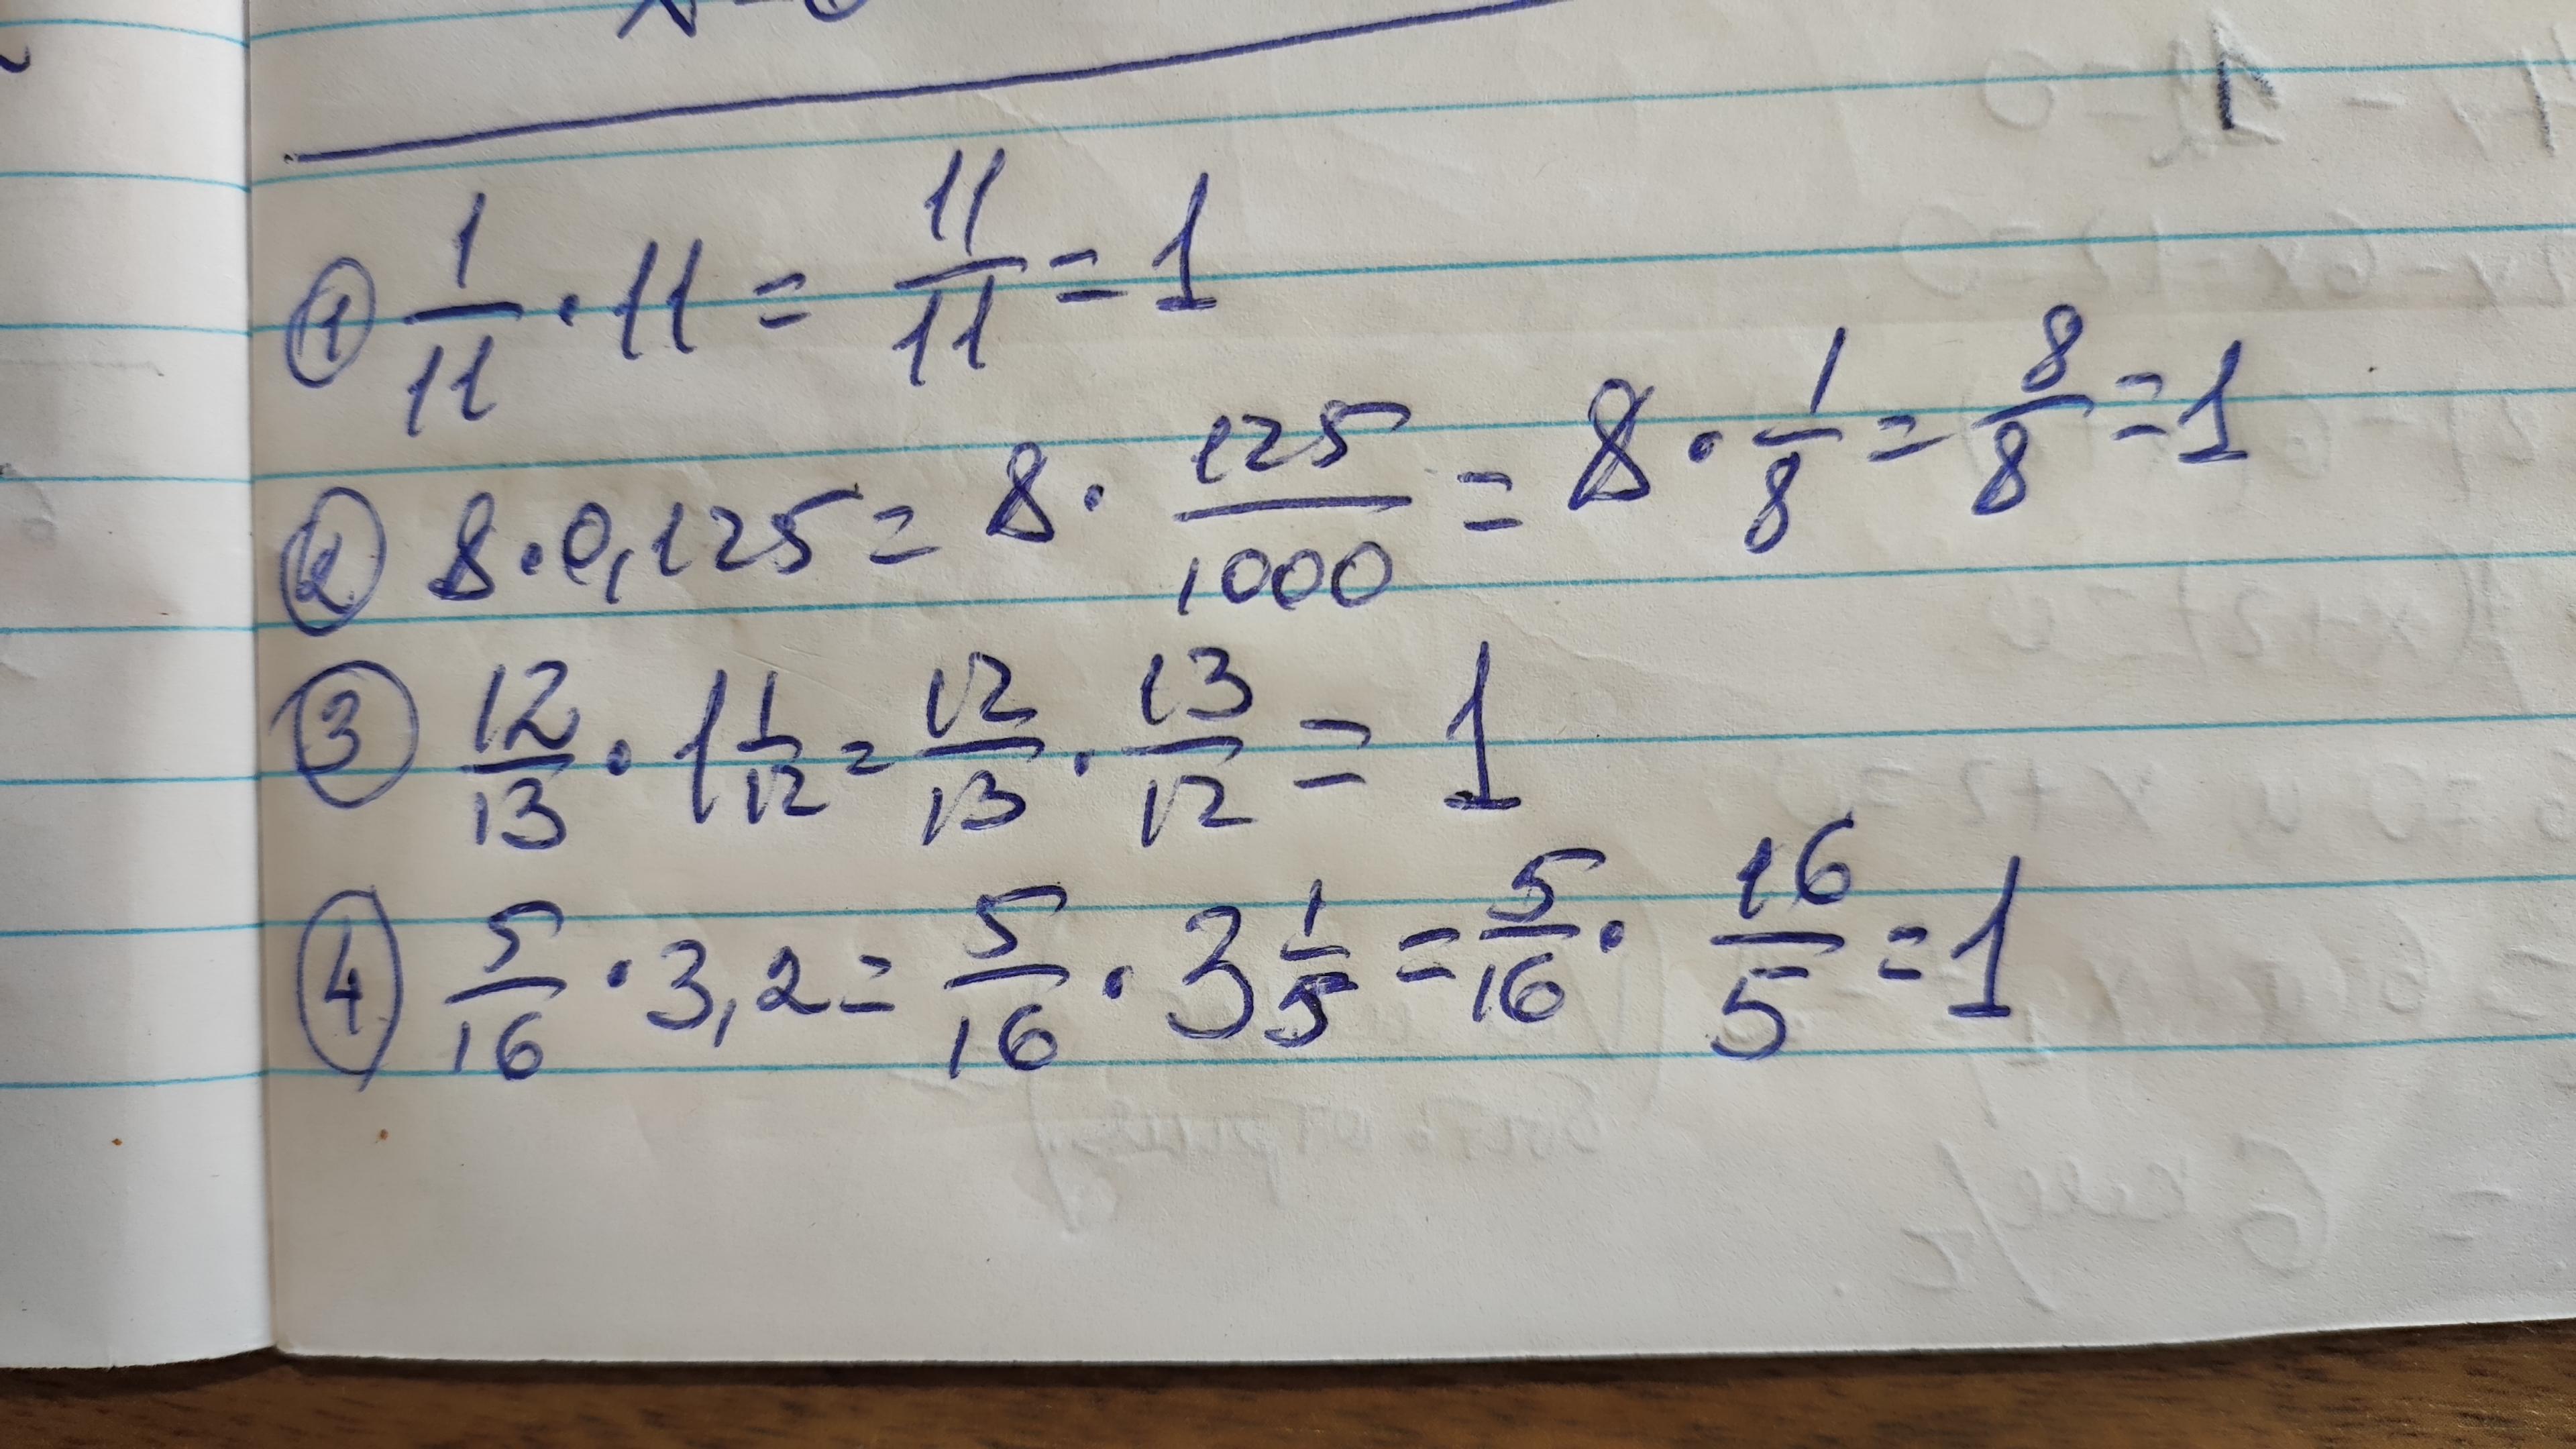 ① 1/11 · 11 = 11/11 = 1
② 8 · 0,125 = 8 · 125/1000 = 8 · 1/8 = 8/8 = 1
③ 12/13 · 1 1/12 = 12/13 · 13/12 = 1
④ 5/16 · 3,2 = 5/16 · 3 1/5 = 5/16 · 16/5 = 1